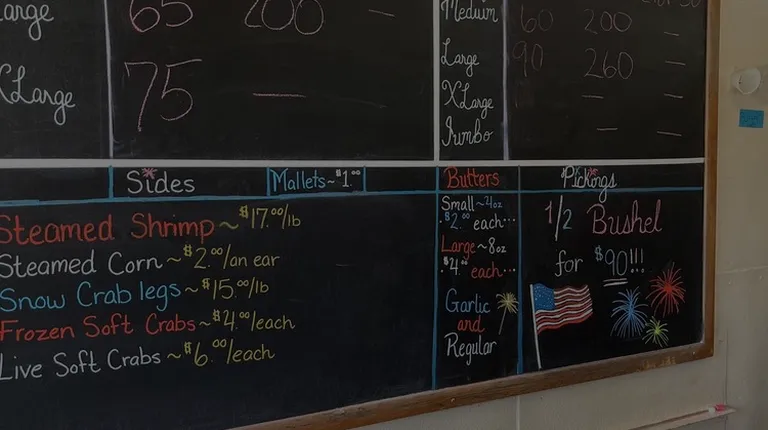 arge 65 200 —
XLarge 75 —
Medium 60 200 —
Large 90 260 —
XLarge — —
Jumbo — —
Sides
Mallets~$1.00
Steamed Shrimp~$17.00/lb
Steamed Corn~$2.00/an ear
Snow Crab legs~$15.00/lb
Frozen Soft Crabs~$4.00/each
Live Soft Crabs~$6.00/each
Butters
Small~4oz
.$2.00 each...
Large~8oz
.$4.00 each...
Garlic
and
Regular
Pickings
1/2 Bushel
for $90!!!